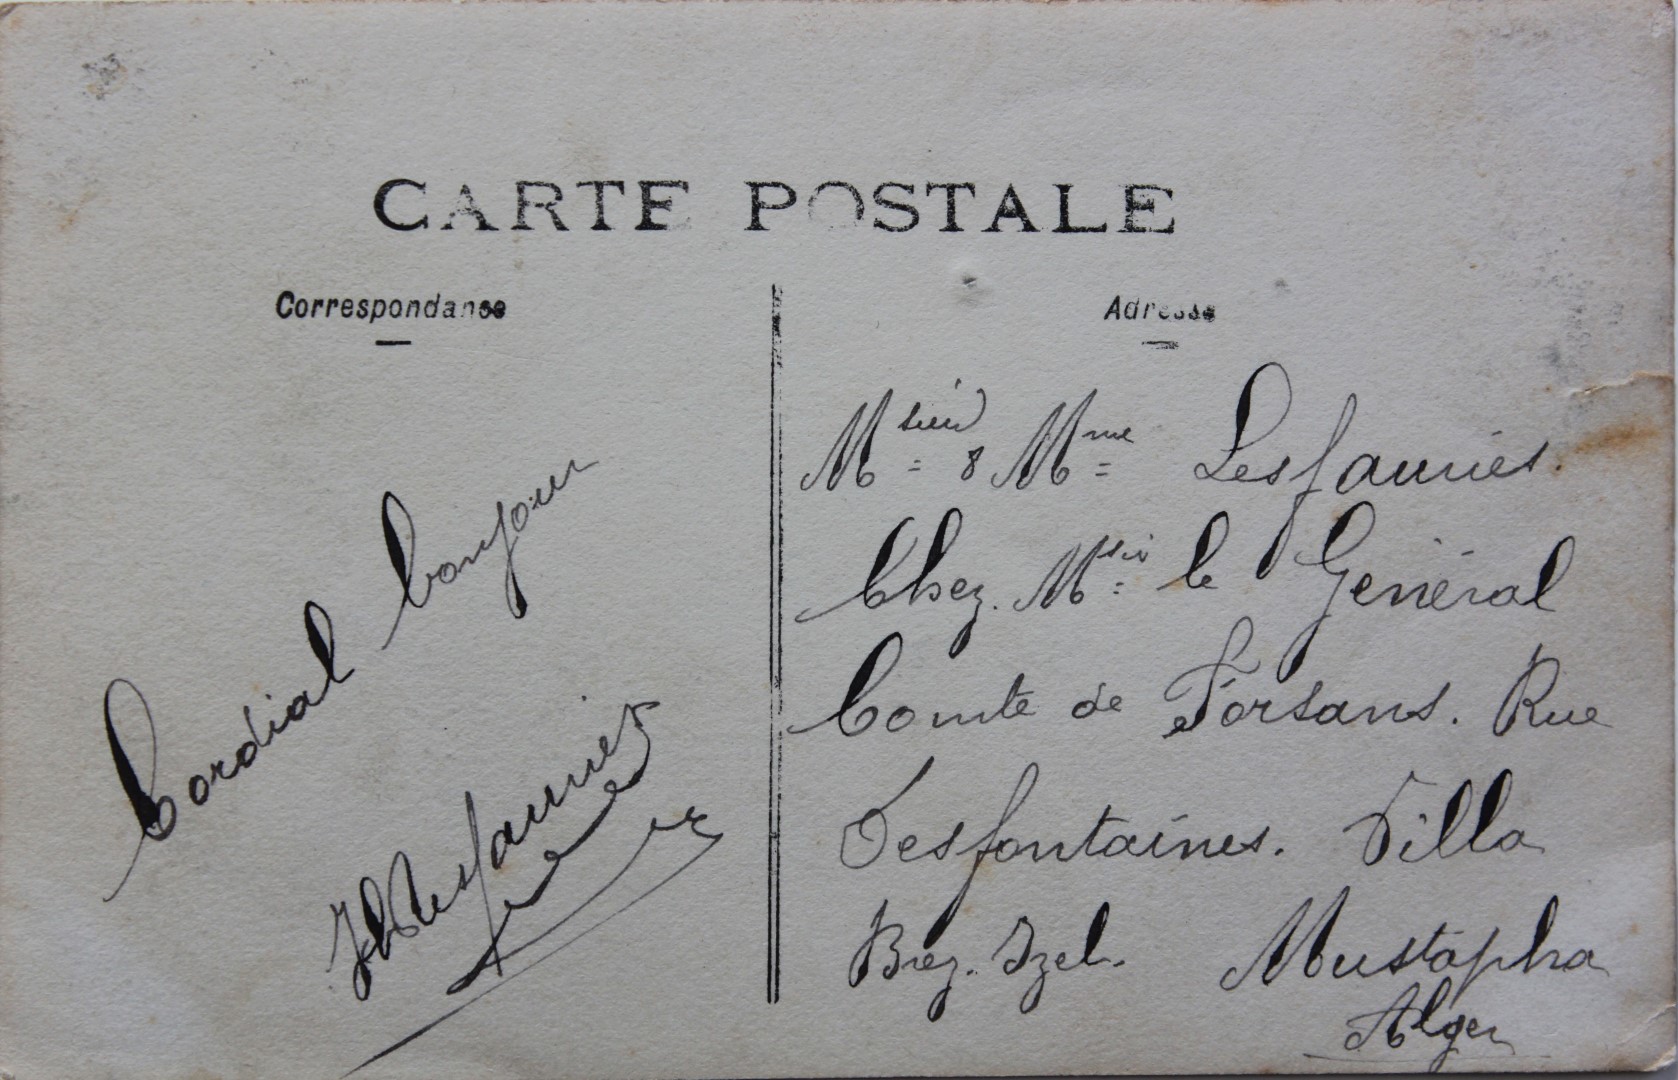 CARTE POSTALE
Correspondance
Adresse
Cordial bonjour
Lesfauries
Msieu & Mme Lesfauries.
Chez. Msir le Général
Comte de Forsans. Rue
Desfontaines. Villa
Brez. Izel. Mustapha
Alger